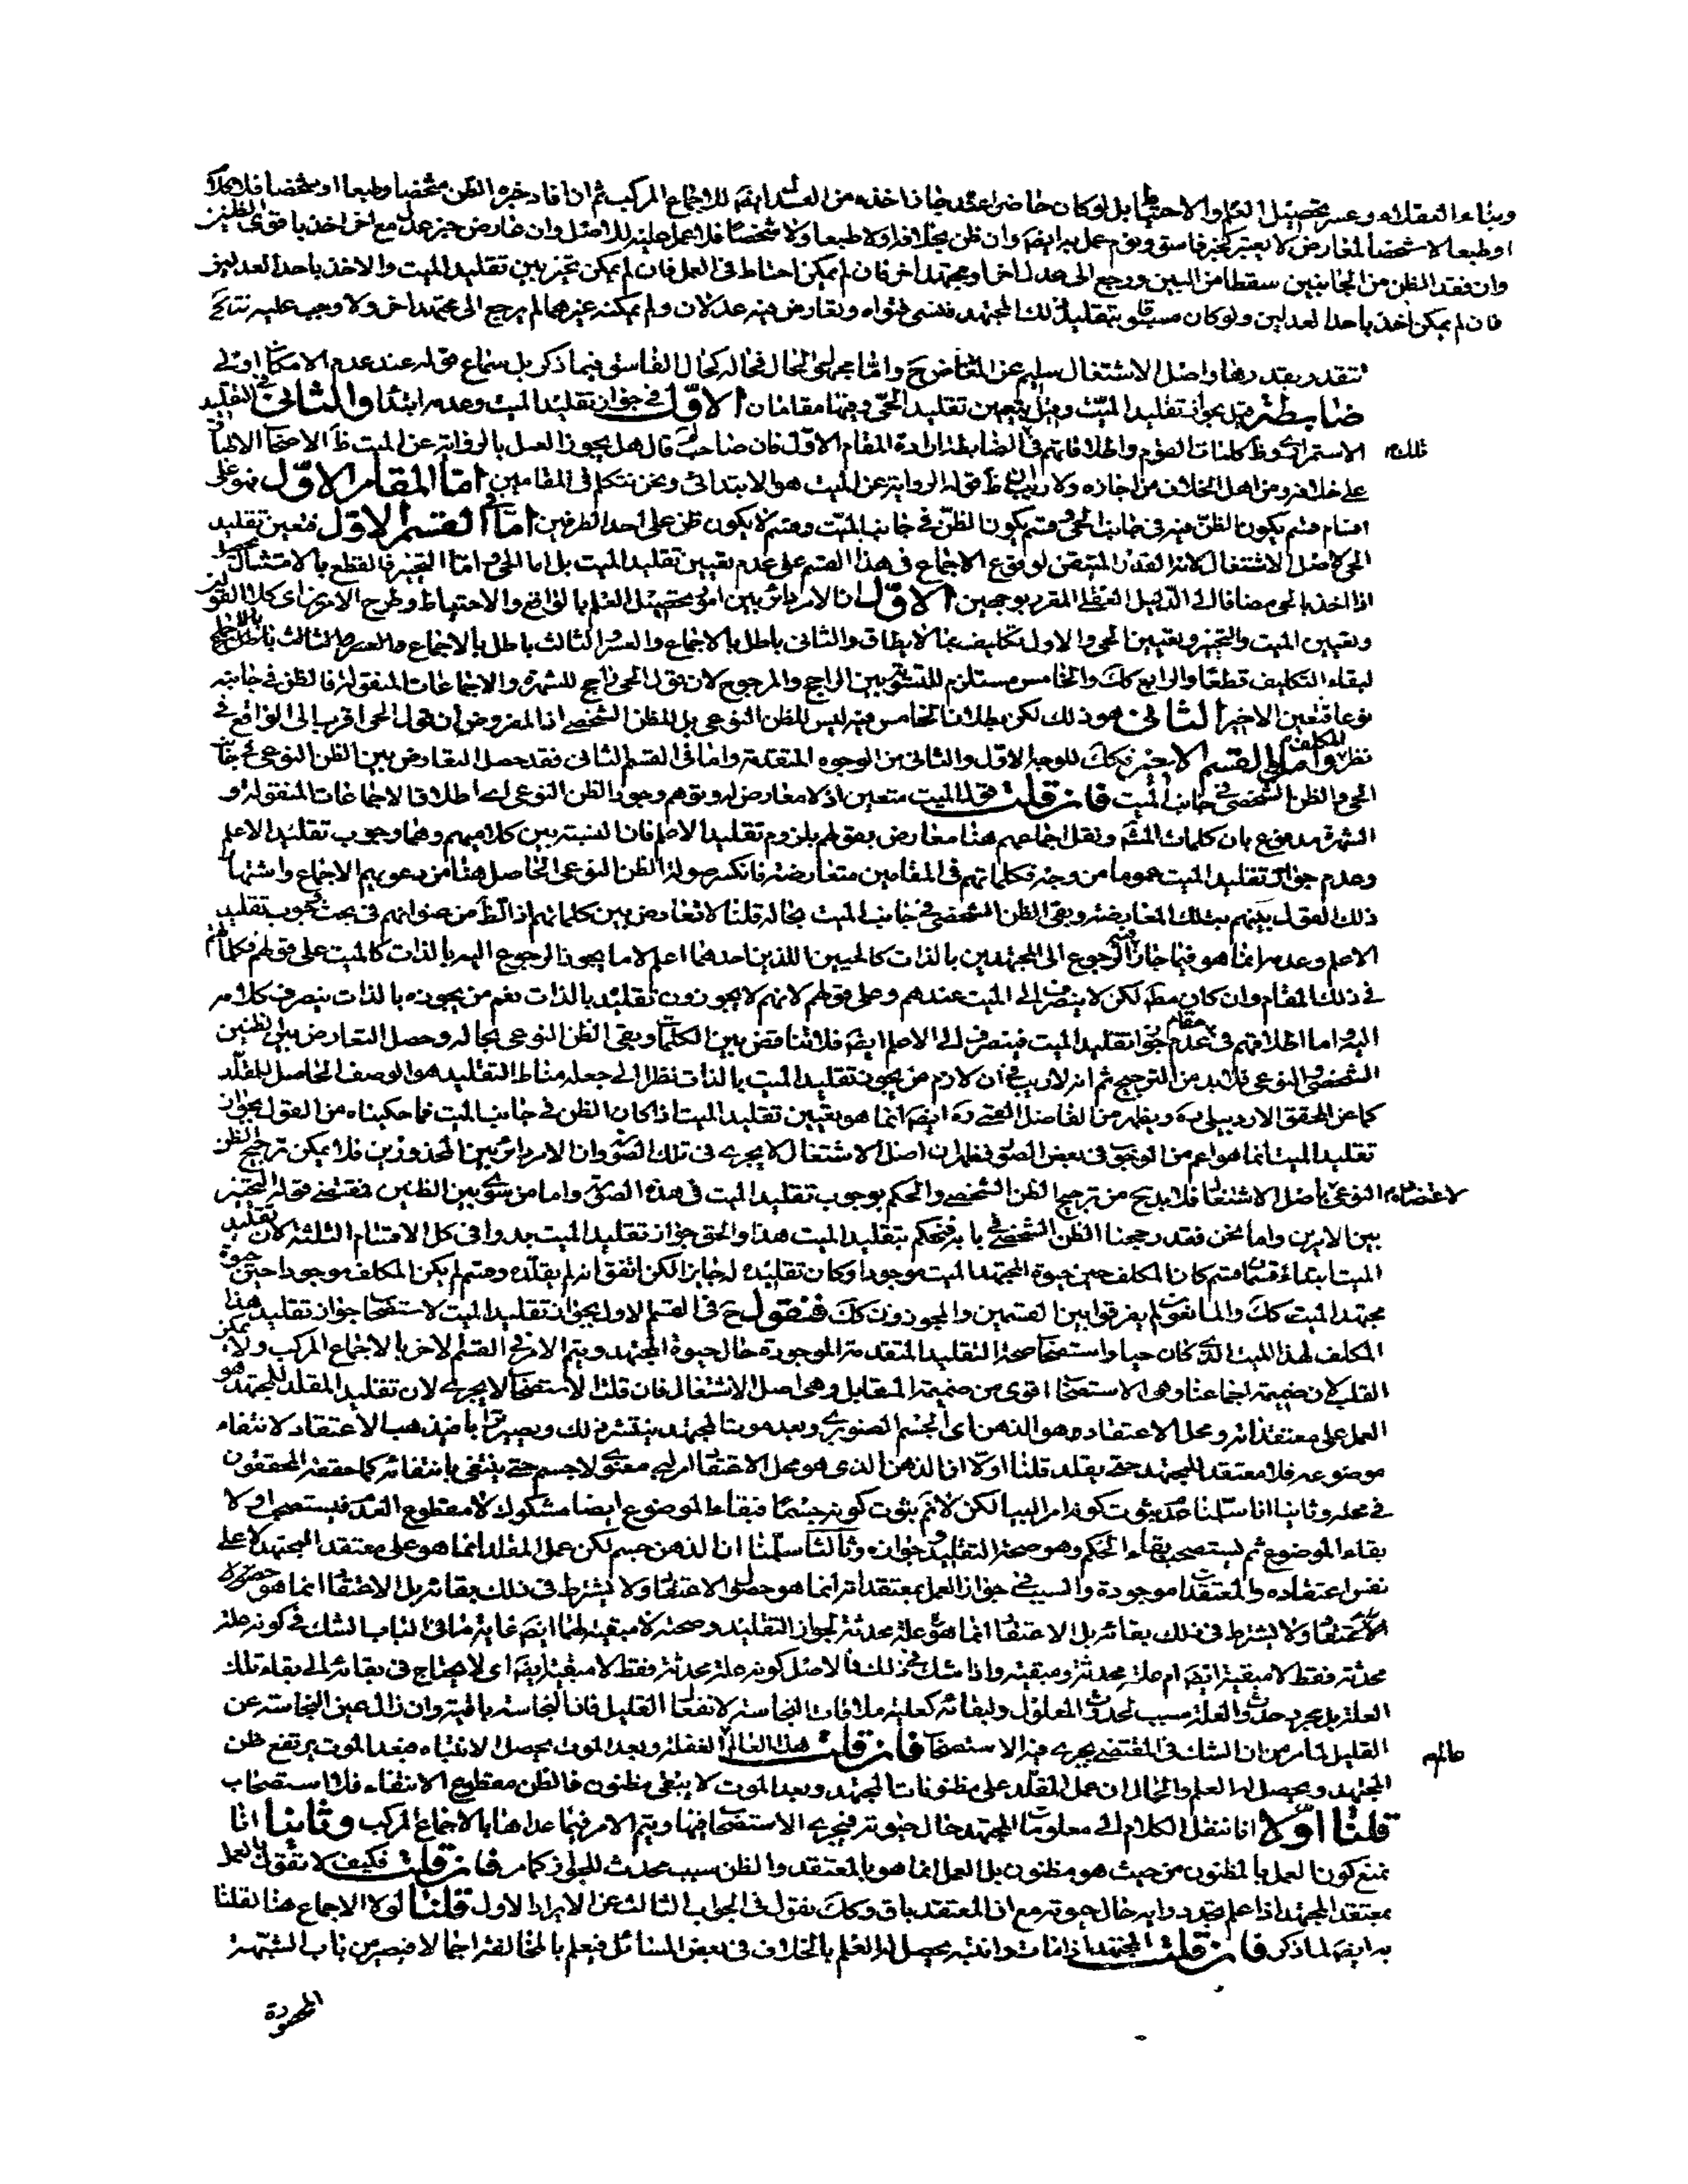 وبناء العقلاء وعسر تحصيل العلم والاحتياط بل لو كان حاضرا عنده جاز اخذه من العدل ايضا للاجماع المركب ثم ان افاد خبره الظن شخصا وطبعا او شخصا فلا كلام
او طبعا لا شخصا لمعارض لا يعتبر كخبر فاسق ونوم عمل به ايضا وان ظن بخلافه او لا طبعا ولا شخصا فلا عمل عليه للاصل وان عارض خبر عدل مع اخر اخذ باقوى الظنين
وان فقد الظن من الجانبين سقطا من البين ورجع الى عدل اخر او مجتهد اخر فان لم يمكن احتاط فى العمل فان لم يمكن تخير بين تقليد الميت والاخذ باحد العدلين
فان لم يمكن اخذ باحد العدلين ولو كان مسبوقا بتقليد ذلك المجتهد فنسى فتواه وتعارض فيه عدلان ولم يمكنه غيرهما لم يرجع الى مجتهد اخر ولا وجب عليه
تتقدر بقدرها واصل الاشتغال سليم عن المعارض ح واما مجهول الحال فحاله كحال الفاسق فيما ذكر بل سماع قوله عند عدم الامكان اولى
ضابطة قيل بجواز تقليد الميت وقيل بتعين تقليد الحى وفيها مقامان الاول فى جواز تقليد الميت وعدمه ابتداء والثانى فى التقليد
الاستمرارى وظ كلمات القوم واطلاقاتهم فى الضابطة ارادة المقام الاول فان صاحب قال هل يجوز العمل بالرواية عن الميت ظ الاصحاب الاطباق
على خلافه ومن اهل الخلاف من اجازه ولا ريب ان ظ قوله الرواية عن الميت هو الابتدائى ونحن نتكلم فى المقامين اما المقام الاول فهو على
اقسام قسم يكون الظن فيه فى جانب الحى وقسم يكون الظن فى جانب الميت وقسم لا يكون ظن على احد الطرفين اما القسم الاول فتعين تقليد
الحى لاصل الاشتغال لانه القدر المتيقن لوقوع الاجماع فى هذا القسم على عدم تعيين تقليد الميت بل اما الحى او التخيير فالقطع بالامتثال يحصل
اذا اخذ بالحى مضافا الى الدليل العقلى المقرر بوجهين الاول ان الامر دائر بين امور تحصيل العلم بالواقع والاحتياط وطرح الامرين اى كلا القولين
وتعيين الميت والتخيير وتعيين الحى والاول تكليف بما لا يطاق والثانى باطل بالاجماع والعسر والثالث باطل بالاجماع
لبقاء التكليف قطعا والرابع كك والخامس مستلزم للتسوية بين الراجح والمرجوح لان قول الحى راجح للشهرة والاجماعات المنقولة فالظن فى جانبه
نوعا فتعين الاخير الثانى هو ذلك لكن بطلان الخامس فيه ليس للظن النوعى بل للظن الشخصى اذ المفروض ان قول الحى اقرب الى الواقع فى
نظر المكلف واما فى القسم الاخير فكك للوجه الاول والثانى من الوجوه المتقدمة واما فى القسم الثانى فقد حصل التعارض بين الظن النوعى فى جانب
الحى والظن الشخصى فى جانب الميت فان قلت قول الميت متعين اذ لا معارض له وتوهم وجود الظن النوعى اى اطلاق الاجماعات المنقولة و
الشهرة مدفوع بان كلمات المشهور ونقل اجماعهم هنا معارض بقولهم بلزوم تقليد الاعلم فان النسبة بين كلاميهم وهما وجوب تقليد الاعلم
وعدم جواز تقليد الميت عموما من وجه فكلماتهم فى المقامين متعارضة فانكسر صولة الظن النوعى الحاصل هنا من دعويهم الاجماع واشتهار
ذلك القول بينهم بتلك المعارضة وبقى الظن الشخصى فى جانب الميت بحاله قلنا لا تعارض بين كلماتهم اذ الظ من عنوانهم فى بحث وجوب تقليد
الاعلم وعدمه انما هو فيما جاز الرجوع الى المجتهدين بالذات كالحيين اللذين احدهما اعلم لا ما يجوز الرجوع اليه بالذات كالميت على قولهم فكلامهم
فى ذلك المقام وان كان مط لكن لا ينصرف الى الميت عندهم وعلى قولهم لانهم لا يجوزون تقليده بالذات نعم من يجوزه بالذات ينصرف كلامه
اليه اما اطلاقهم فى مقام عدم جواز تقليد الميت فينصرف الى الاعلم ايضا فلا تناقض بين الكلمات وبقى الظن النوعى بحاله وحصل التعارض بين الظنين
الشخصى والنوعى فلا بد من الترجيح ثم انه لا ريب فى ان لازم من يجوز تقليد الميت بالذات نظرا الى جعله مناط التقليد هو الوصف الحاصل للمقلد
كما عن المحقق الاردبيلى ره ويظهر من الفاضل القمى ره ايضا انما هو تعيين تقليد الميت اذا كان الظن فى جانب الميت فما حكيناه من القول بجواز
تقليد الميت انما هو اعم من الوجوب فى بعض الصور فظهر ان اصل الاشتغال لا يجرى فى تلك الصورة وان الامر دائر بين المحذورين فلا يمكن ترجيح الظن
النوعى لاعتضاده باصل الاشتغال فلا بد ح من ترجيح الظن الشخصى والحكم بوجوب تقليد الميت فى هذه الصورة واما من سوى بين الظنين فمقتضى قوله التخيير
بين الامرين واما نحن فقد رجحنا الظن الشخصى فنحكم بتقليد الميت هذا والحق جواز تقليد الميت بدوا فى كل الاقسام الثلثة لان تقليد
الميت ابتداء قسمان قسم كان المكلف حين حيوة المجتهد الميت موجودا وكان تقليده له جايزا لكن اتفق انه لم يقلده وقسم لم يكن المكلف موجودا حين حيوة
مجتهد الميت كك والمانعون لم يفرقوا بين القسمين والمجوزون كك فنقول ح فى القسم الاول يجوز تقليد الميت لاستصحاب جواز تقليد هذا
المكلف لهذا الميت الذى كان حيا واستصحاب صحة التقليد المتقدمة الموجودة حال حيوة المجتهد ويتم الامر فى القسم الاخر بالاجماع المركب ولا يمكن
القلب لان ضميمة اجماعنا وهو الاستصحاب اقوى من ضميمة المقابل وهى اصل الاشتغال فان قلت الاستصحاب لا يجرى لان تقليد المقلد للمجتهد هو
العمل على معتقداته ومحل الاعتقاد هو الذهن اى الجسم الصنوبرى وبعد موت المجتهد ينتشر ذلك ويصير ترابا فيذهب الاعتقاد لانتفاء
موضوعه فلا معتقد للمجتهد حتى يقلد قلنا اولا ان الذهن الذى هو محل الاعتقاد امر معنوى لا جسم حتى ينتفى بانتفائه كما حققه المحققون
فى محله وثانيا انا سلمنا عدم ثبوت كونه امرا لبيا لكن لا نم ثبوت كونه جسما فبقاء الموضوع ايضا مشكوك لا مقطوع العدم فيستصحب اولا
بقاء الموضوع ثم يستصحب بقاء الحكم وهو صحة التقليد وجوازه وثالثا سلمنا ان الذهن جسم لكن عمل المقلد انما هو على معتقد المجتهد لا على
نفس اعتقاده والمعتقدات موجودة والسبب فى جواز العمل بمعتقداته انما هو حصول الاعتقاد ولا يشترط فى ذلك بقائه بل الاعتقاد انما هو حصول
الاعتقاد ولا يشترط فى ذلك بقائه بل الاعتقاد انما هو علة محدثة لجواز التقليد وصحته لا مبقية لهما ايضا غاية ما فى الباب الشك فى كونه علة
محدثة فقط لا مبقية ايضا ام علة محدثة ومبقية واذا شك فى ذلك فالاصل كونه علة محدثة فقط لا مبقية ايضا اى لا يحتاج فى بقائه الى بقاء تلك
العلة بل مجرد حدوث العلة سبب لحدوث المعلول ولبقائه كعلية ملاقات النجاسة لانفعال القليل فان النجاسة باقية وان زال عين النجاسة عن
القليل لما مر من ان الشك فى المقتضى يجرى فيه الاستصحاب فان قلت هذا العالم عالم الغفلة وبعد الموت يحصل الانتباه فبعد الموت يرتفع ظن
المجتهد ويحصل له العلم والحال ان عمل المقلد على مظنونات المجتهد وبعد الموت لا يبقى مظنون فالظن مقطوع الانتفاء فلا استصحاب
قلنا اولا انا ننقل الكلام الى معلومات المجتهد حال حيوته فيجرى الاستصحاب فيها ويتم الامر فيما عداها بالاجماع المركب وثانيا انا
نمنع كون العمل بالمظنون من حيث هو مظنون بل العمل انما هو بالمعتقد والظن سبب محدث للجواز كما مر فان قلت فكيف لا تقول بالعمل
معتقد المجتهد اذا علم تجدد رايه حال حيوته مع ان المعتقد باق وكك نقول فى الجواب الثالث عن الايراد الاول قلنا لولا الاجماع هنا لقلنا
به ايضا لما ذكر فان قلت المجتهد اذا مات وانتبه يحصل له العلم بالخلاف فى بعض المسائل فيعلم بالمخالفة اجمالا فيصير من باب الشبهة
المحصورة